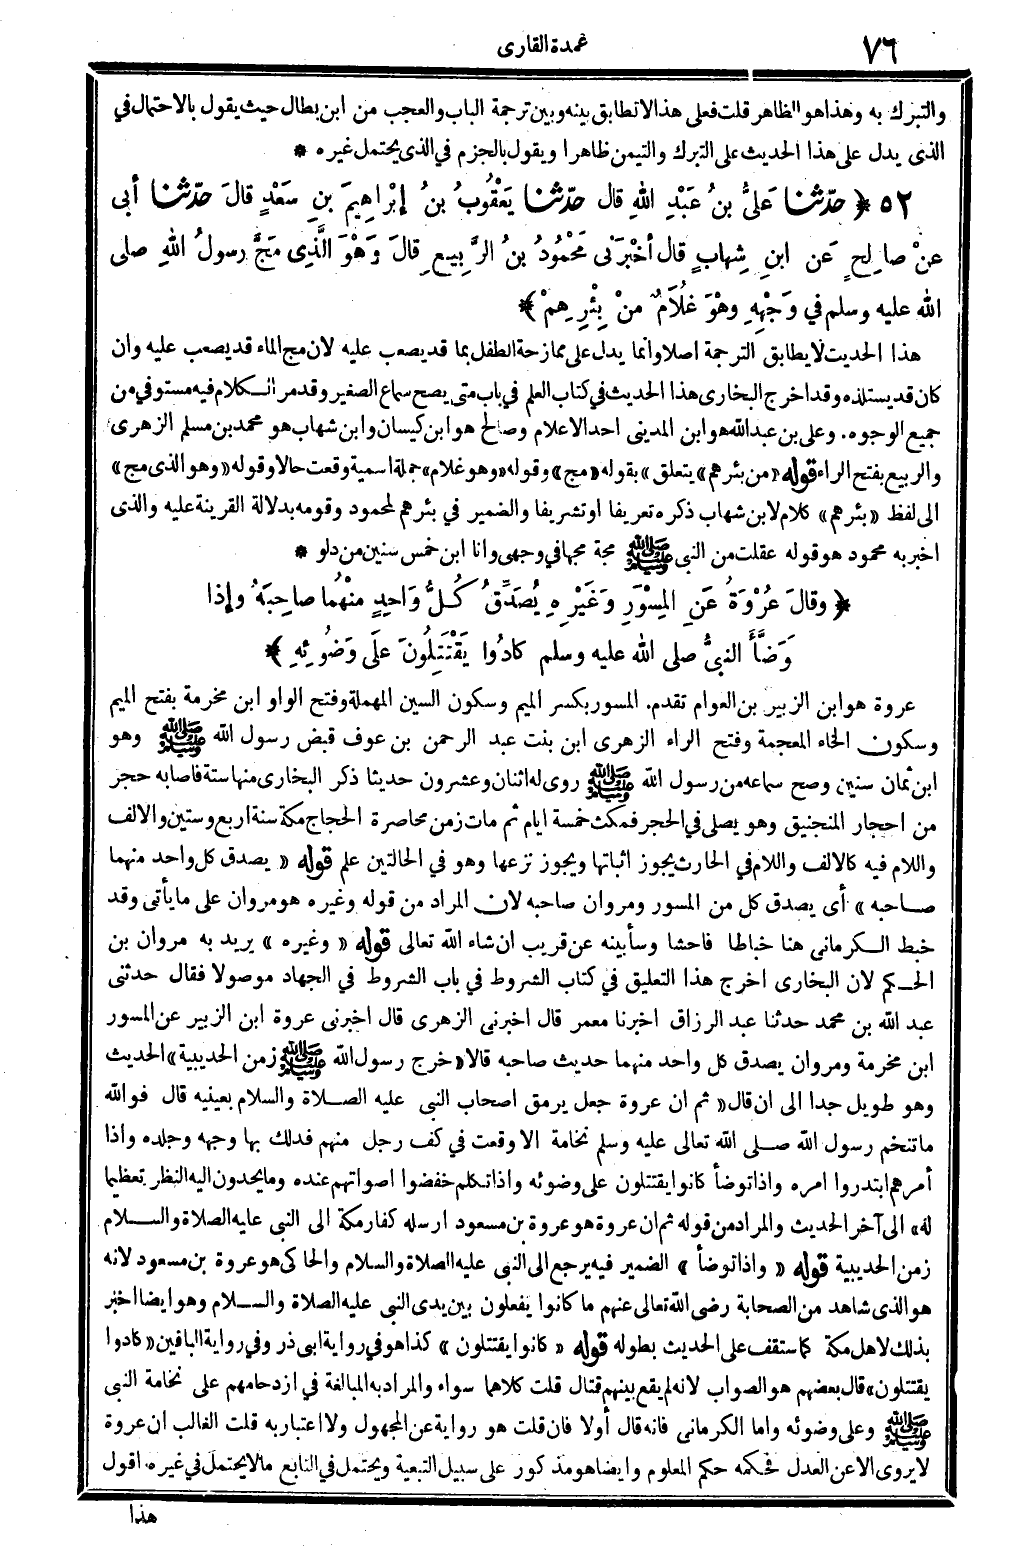 ٧٦
عمدة القارى
والتبرك به وهذا هو الظاهر قلت فعلى هذا لا تطابق بينه وبين ترجمة الباب والعجب من ابن بطال حيث يقول بالاحتمال في
الذى يدل على هذا الحديث على التبرك والتيمن ظاهرا ويقول بالجزم في الذى يحتمل غيره *
٥٢ ﴿ حدّثنا عَلىُّ بنُ عَبْدِ اللهِ قال حدّثنا يَعْقُوبُ بنُ إبْرَاهِيمَ بنِ سَعْدٍ قالَ حدّثنا أبى
عنْ صالِحٍ عَن ابنِ شِهابٍ قال أخْبَرَنى مَحْمُودُ بنُ الرَّبِيعِ قالَ وَهْوَ الَّذِى مَجَّ رسولُ اللهِ صلى
الله عليه وسلم في وَجْهِهِ وهْوَ غُلَامٌ منْ بِئْرِهِمْ ﴾
هذا الحديث لا يطابق الترجمة اصلا وانما يدل على ممازحة الطفل بما قد يصعب عليه لان مج الماء قد يصعب عليه وان
كان قد يستلذه وقد اخرج البخارى هذا الحديث في كتاب العلم في باب متى يصح سماع الصغير وقد مر الكلام فيه مستوفي من
جميع الوجوه. وعلى بن عبدالله هو ابن المدينى احد الاعلام وصالح هو ابن كيسان وابن شهاب هو محمد بن مسلم الزهرى
والربيع بفتح الراء قوله «من بئرهم» يتعلق » بقوله «مج» وقوله «وهو غلام» جملة اسمية وقعت حالا وقوله «وهو الذى مج»
الى لفظ «بئرهم» كلام لابن شهاب ذكره تعريفا او تشريفا والضمير في بئرهم لمحمود وقومه بدلالة القرينة عليه والذى
اخبر به محمود هو قوله عقلت من النبى ﷺ مجة مجها في وجهى وانا ابن خمس سنين من دلو *
﴿ وقالَ عُرْوَةُ عَنِ المِسْوَرِ وَغَيْرِهِ يُصَدِّقُ كُلُّ وَاحِدٍ منْهُما صاحِبَهُ وإذا
وَضَّأَ النبىُّ صلى الله عليه وسلم كادُوا يَقْتَتِلُونَ علَى وَضُوئِهِ ﴾
عروة هو ابن الزبير بن العوام تقدم. المسور بكسر الميم وسكون السين المهملة وفتح الواو ابن مخرمة بفتح الميم
وسكون الخاء المعجمة وفتح الراء الزهرى ابن بنت عبد الرحمن بن عوف قبض رسول الله ﷺ وهو
ابن ثمان سنين وصح سماعه من رسول الله ﷺ روى له اثنان وعشرون حديثا ذكر البخارى منها ستة فاصابه حجر
من احجار المنجنيق وهو يصلى في الحجر فمكث خمسة ايام ثم مات زمن محاصرة الحجاج مكة سنة اربع وستين والالف
واللام فيه كالالف واللام في الحارث يجوز اثباتها ويجوز نزعها وهو في الحالتين علم قوله « يصدق كل واحد منهما
صاحبه » أى يصدق كل من المسور ومروان صاحبه لان المراد من قوله وغيره هو مروان على ما يأتى وقد
خبط الكرمانى هنا خباطا فاحشا وسأبينه عن قريب ان شاء الله تعالى قوله « وغيره » يريد به مروان بن
الحكم لان البخارى اخرج هذا التعليق في كتاب الشروط في باب الشروط في الجهاد موصولا فقال حدثنى
عبد الله بن محمد حدثنا عبد الرزاق اخبرنا معمر قال اخبرنى الزهرى قال اخبرنى عروة ابن الزبير عن المسور
ابن مخرمة ومروان يصدق كل واحد منهما حديث صاحبه قالا «خرج رسول الله ﷺ زمن الحديبية» الحديث
وهو طويل جدا الى ان قال « ثم ان عروة جعل يرمق اصحاب النبى عليه الصلاة والسلام بعينيه قال فوالله
ما تنخم رسول الله صلى الله تعالى عليه وسلم نخامة الا وقعت في كف رجل منهم فدلك بها وجهه وجلده واذا
أمرهم ابتدروا امره واذا توضأ كانوا يقتتلون على وضوئه واذا تكلم خفضوا اصواتهم عنده وما يحدون اليه النظر تعظيما
له» الى آخر الحديث والمراد من قوله ثم ان عروة هو عروة بن مسعود ارسله كفار مكة الى النبى عليه الصلاة والسلام
زمن الحديبية قوله « واذا توضأ » الضمير فيه يرجع الى النبى عليه الصلاة والسلام والحاكى هو عروة بن مسعود لانه
هو الذى شاهد من الصحابة رضى الله تعالى عنهم ما كانوا يفعلون بين يدى النبى عليه الصلاة والسلام وهو ايضا اخبر
بذلك لاهل مكة كما ستقف على الحديث بطوله قوله « كانوا يقتتلون » كذا هو في رواية ابى ذر وفي رواية الباقين «كادوا
يقتتلون» قال بعضهم هو الصواب لانه لم يقع بينهم قتال قلت كلاهما سواء والمراد به المبالغة في ازدحامهم على نخامة النبى
ﷺ وعلى وضوئه واما الكرمانى فانه قال أولا فان قلت هو رواية عن المجهول ولا اعتبار به قلت الغالب ان عروة
لا يروى الا عن العدل فحكمه حكم المعلوم وايضا هو مذكور على سبيل التبعية ويحتمل في التابع مالا يحتمل في غيره. اقول
هذا